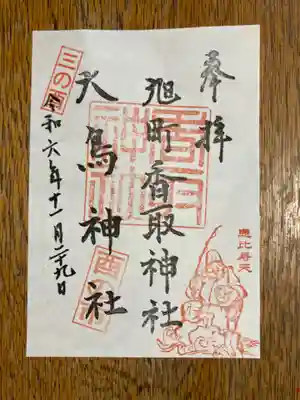 奉拝
旭町香取神社
大鳥神社
三の酉
令和六年十一月二十九日
恵比寿天